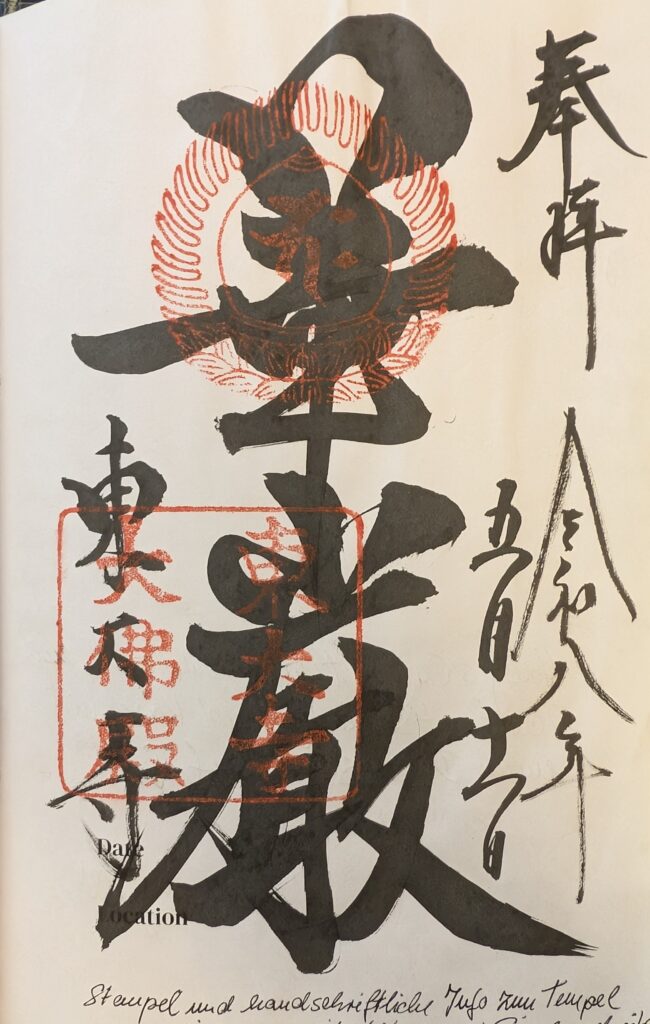 奉拝
令和八年
五月
華嚴
東大寺
東大寺
大佛殿
Date
Location
Stempel und handschriftliche Info zum Tempel